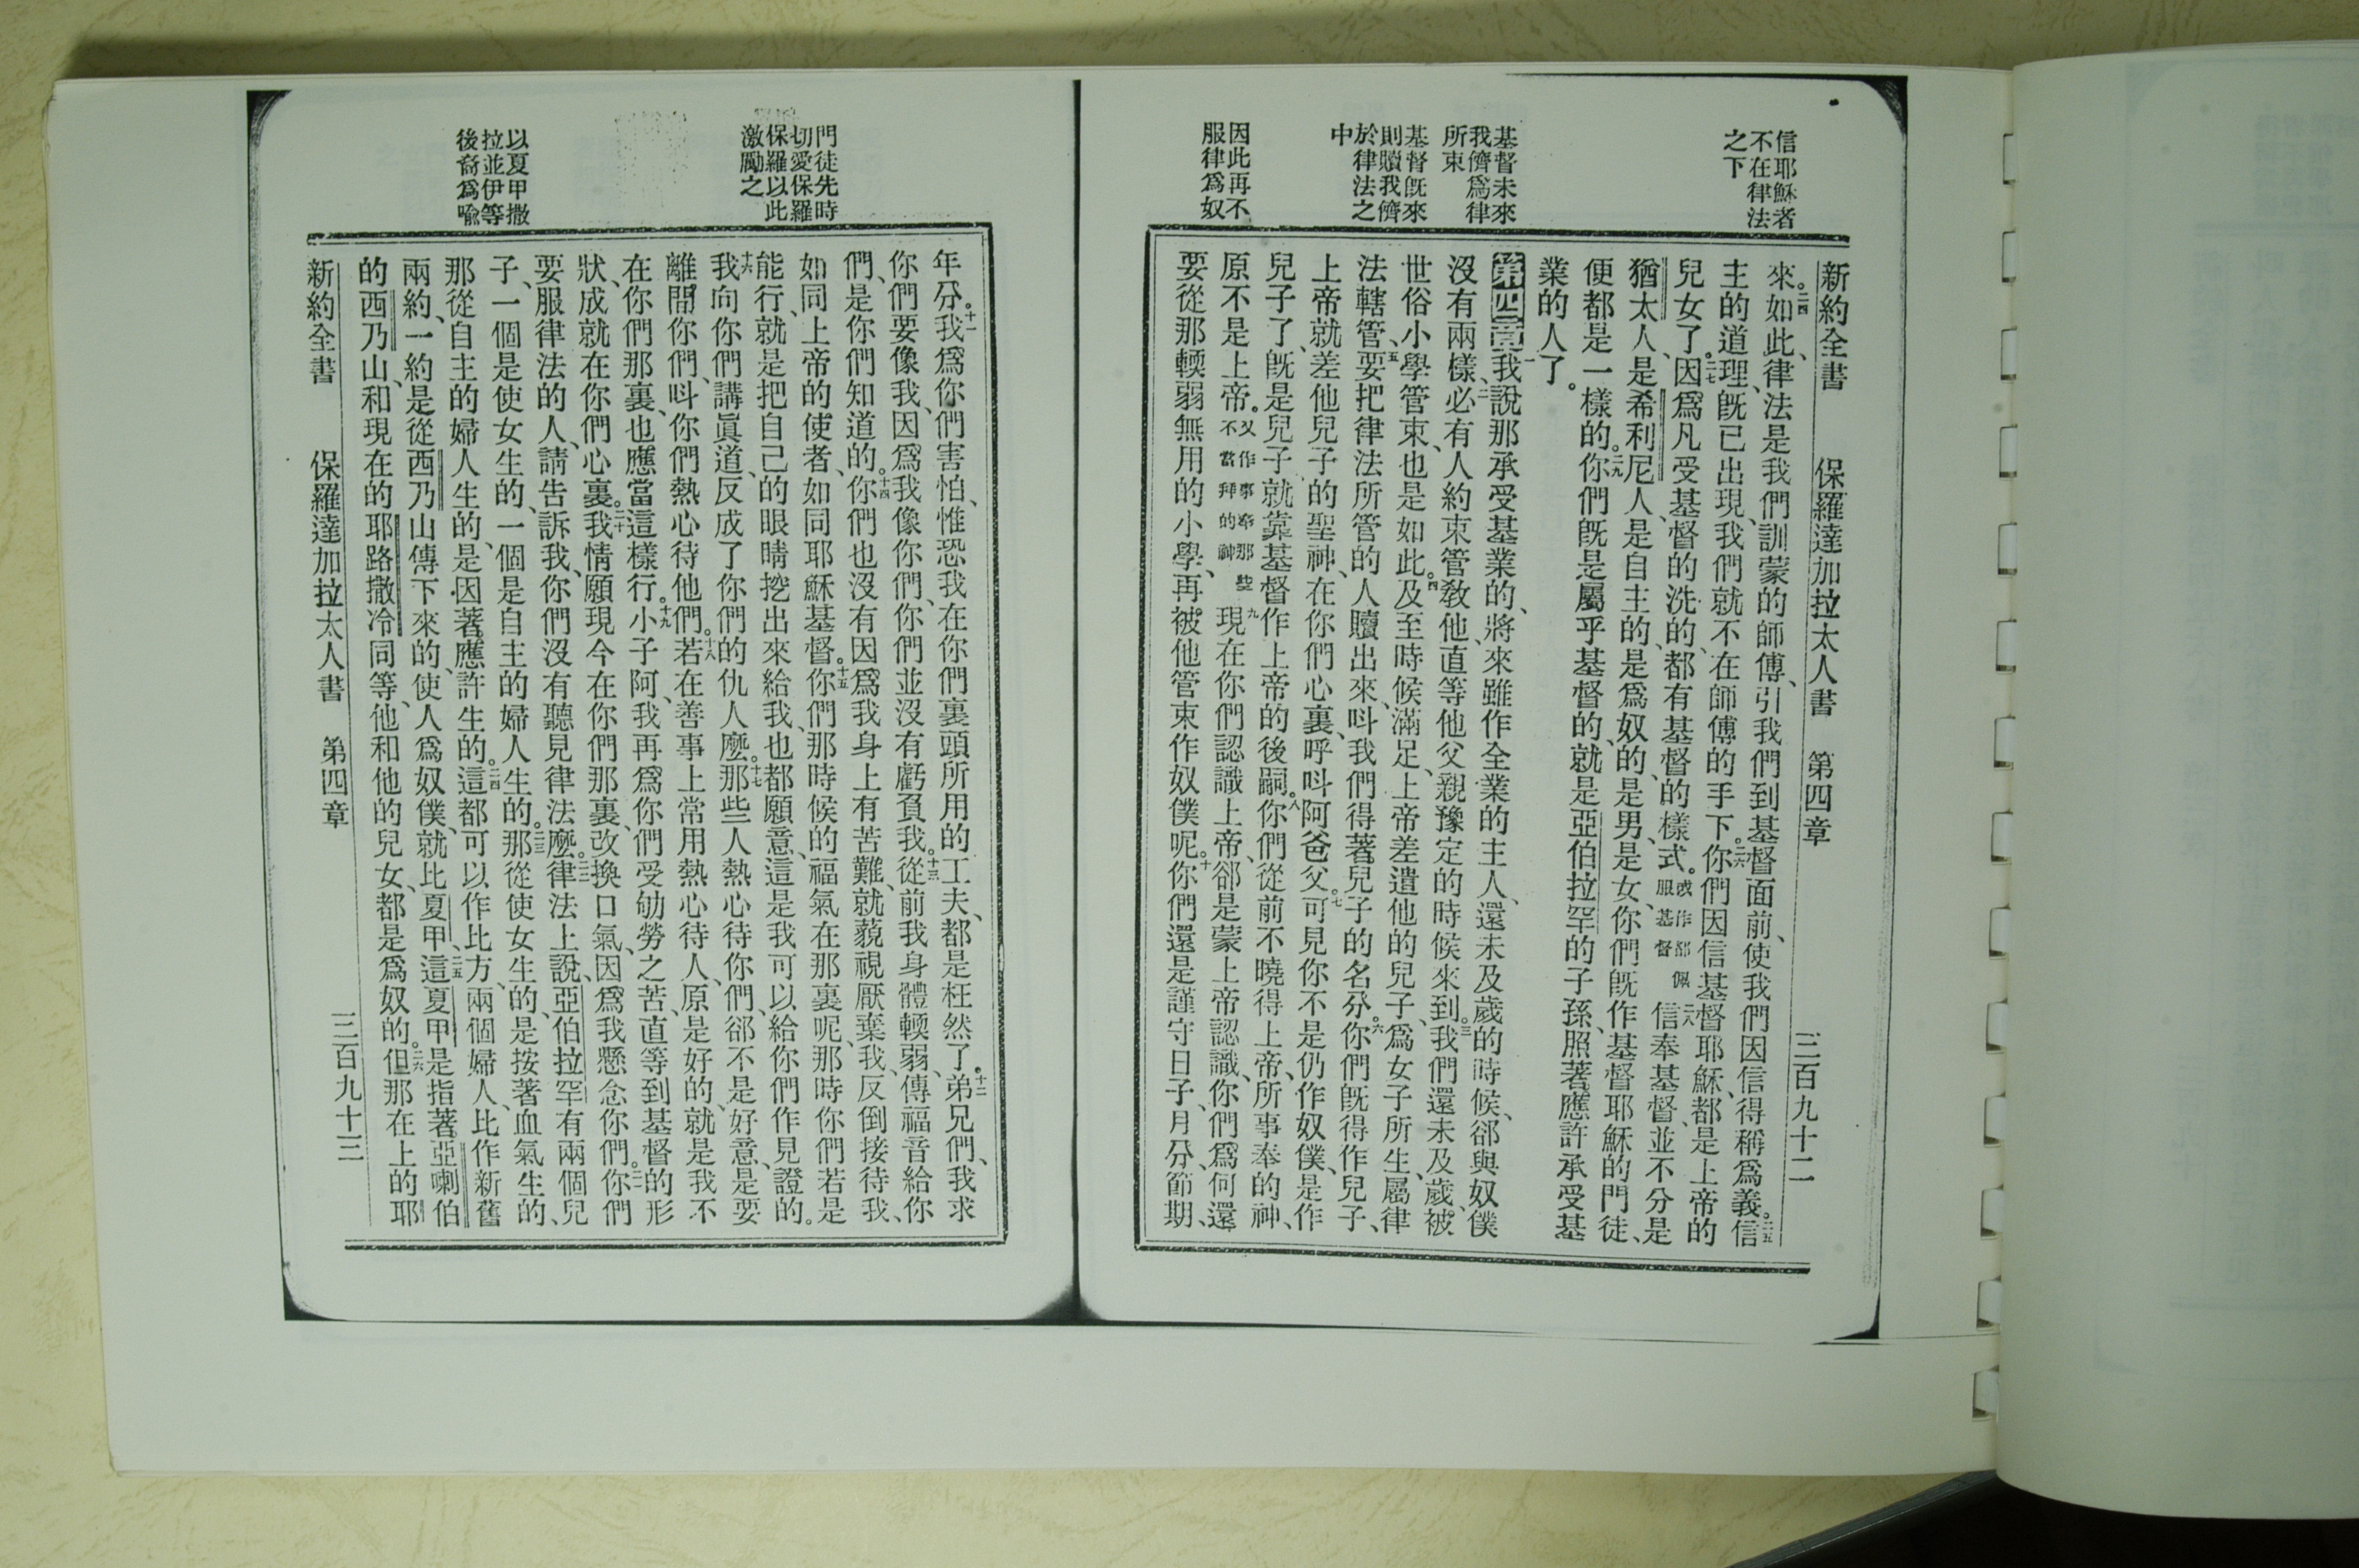 信耶穌者
不在律法
之下
基督未來
我儕爲律
所束
基督既來
則贖我儕
於律法之
中
因此再不
服律爲奴
新約全書 保羅達加拉太人書 第四章 三百九十二
來。二四如此、律法是我們訓蒙的師傅、引我們到基督面前、使我們因信得稱爲義。二五信
主的道理、既已出現、我們就不在師傅的手下。二六你們因信基督耶穌、都是上帝的
兒女了。二七因爲凡受基督的洗的、都有基督的樣式。或作都佩服基督二八信奉基督、並不分是
猶太人、是希利尼人、是自主的、是爲奴的、是男、是女、你們既作基督耶穌的門徒、
便都是一樣的。二九你們既是屬乎基督的、就是亞伯拉罕的子孫、照著應許承受基
業的人了。
第四章一我說那承受基業的、將來雖作全業的主人、還未及歲的時候、郤與奴僕
沒有兩樣、二必有人約束管教他、直等他父親豫定的時候來到。三我們還未及歲、被
世俗小學管束、也是如此。四及至時候滿足、上帝差遣他的兒子、爲女子所生、屬律
法轄管、五要把律法所管的人贖出來、呌我們得著兒子的名分。六你們既得作兒子、
上帝就差他兒子的聖神、在你們心裏、呼呌阿爸父。七可見你不是仍作奴僕、是作
兒子了、既是兒子、就靠基督作上帝的後嗣。八你們從前不曉得上帝、所事奉的神、
原不是上帝。又作事奉那些不當拜的神九現在你們認識上帝、郤是蒙上帝認識、你們爲何還
要從那輭弱無用的小學、再被他管束作奴僕呢。十你們還是謹守日子、月分、節期、
門徒先時
切愛保羅
保羅以此
激勵之
以夏甲撒
拉並伊等
後裔爲喩
年分。十一我爲你們害怕、惟恐我在你們裏頭所用的工夫、都是枉然了。十二弟兄們、我求
你們要像我、因爲我像你們、你們並沒有虧負我。十三從前我身體輭弱、傳福音給你
們、是你們知道的。十四你們也沒有因爲我身上有苦難、就藐視厭棄我、反倒接待我、
如同上帝的使者、如同耶穌基督。十五你們那時候的福氣在那裏呢、那時你們若是
能行、就是把自己的眼睛挖出來給我、也都願意、這是我可以給你們作見證的。
十六我向你們講眞道、反成了你們的仇人麽。十七那些人熱心待你們、郤不是好意、是要
離間你們、呌你們熱心待他們。十八若在善事上常用熱心待人、原是好的、就是我不
在你們那裏、也應當這樣行。十九小子阿、我再爲你們受劬勞之苦、直等到基督的形
狀、成就在你們心裏。二十我情願現今在你們那裏、改換口氣、因爲我懸念你們。二一你們
要服律法的人、請告訴我、你們沒有聽見律法麽。二二律法上說、亞伯拉罕有兩個兒
子、一個是使女生的、一個是自主的婦人生的。二三那從使女生的、是按著血氣生的、
那從自主的婦人生的、是因著應許生的。二四這都可以作比方、兩個婦人、比作新舊
兩約、一約是從西乃山傳下來的、使人爲奴僕、就比夏甲、二五這夏甲是指著亞喇伯
的西乃山、和現在的耶路撒冷同等、他和他的兒女、都是爲奴的。二六但那在上的耶
新約全書 保羅達加拉太人書 第四章 三百九十三